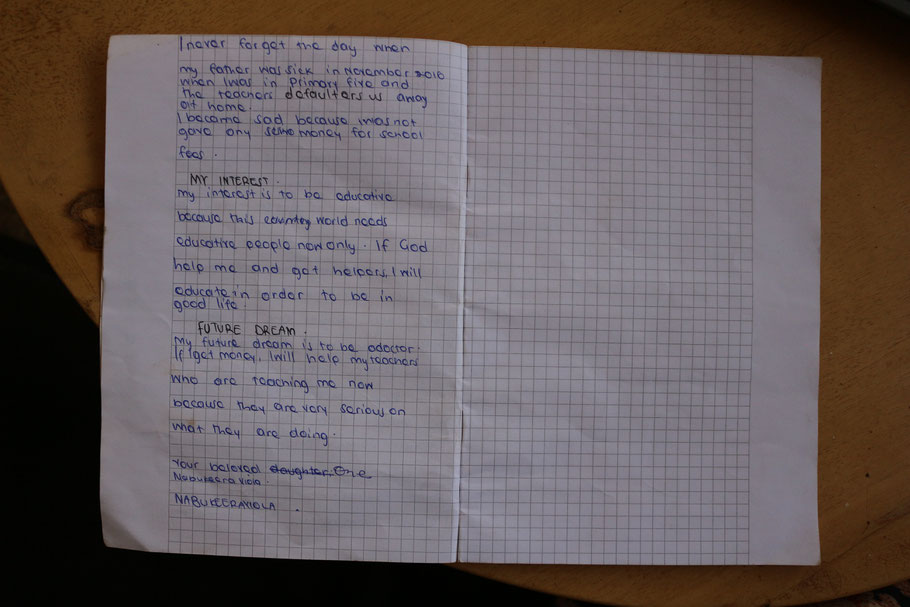 I never forget the day when
my father was sick in November 2010
when I was in Primary five and
the teachers defaulters us away
at home.
I become sad because was not
gave any some money for school
fees.
MY INTEREST.
my interest is to be educative
because this country world needs
educative people now only. If God
help me and get helpers, I will
educate in order to be in
good life.
FUTURE DREAM.
My future dream is to be adoctor.
If I get money, I will help my teachers
who are teaching me now
because they are very serious on
what they are doing.
Your beloved daughter One
Nabukeera viola.
NABUKEERAVIOLA.